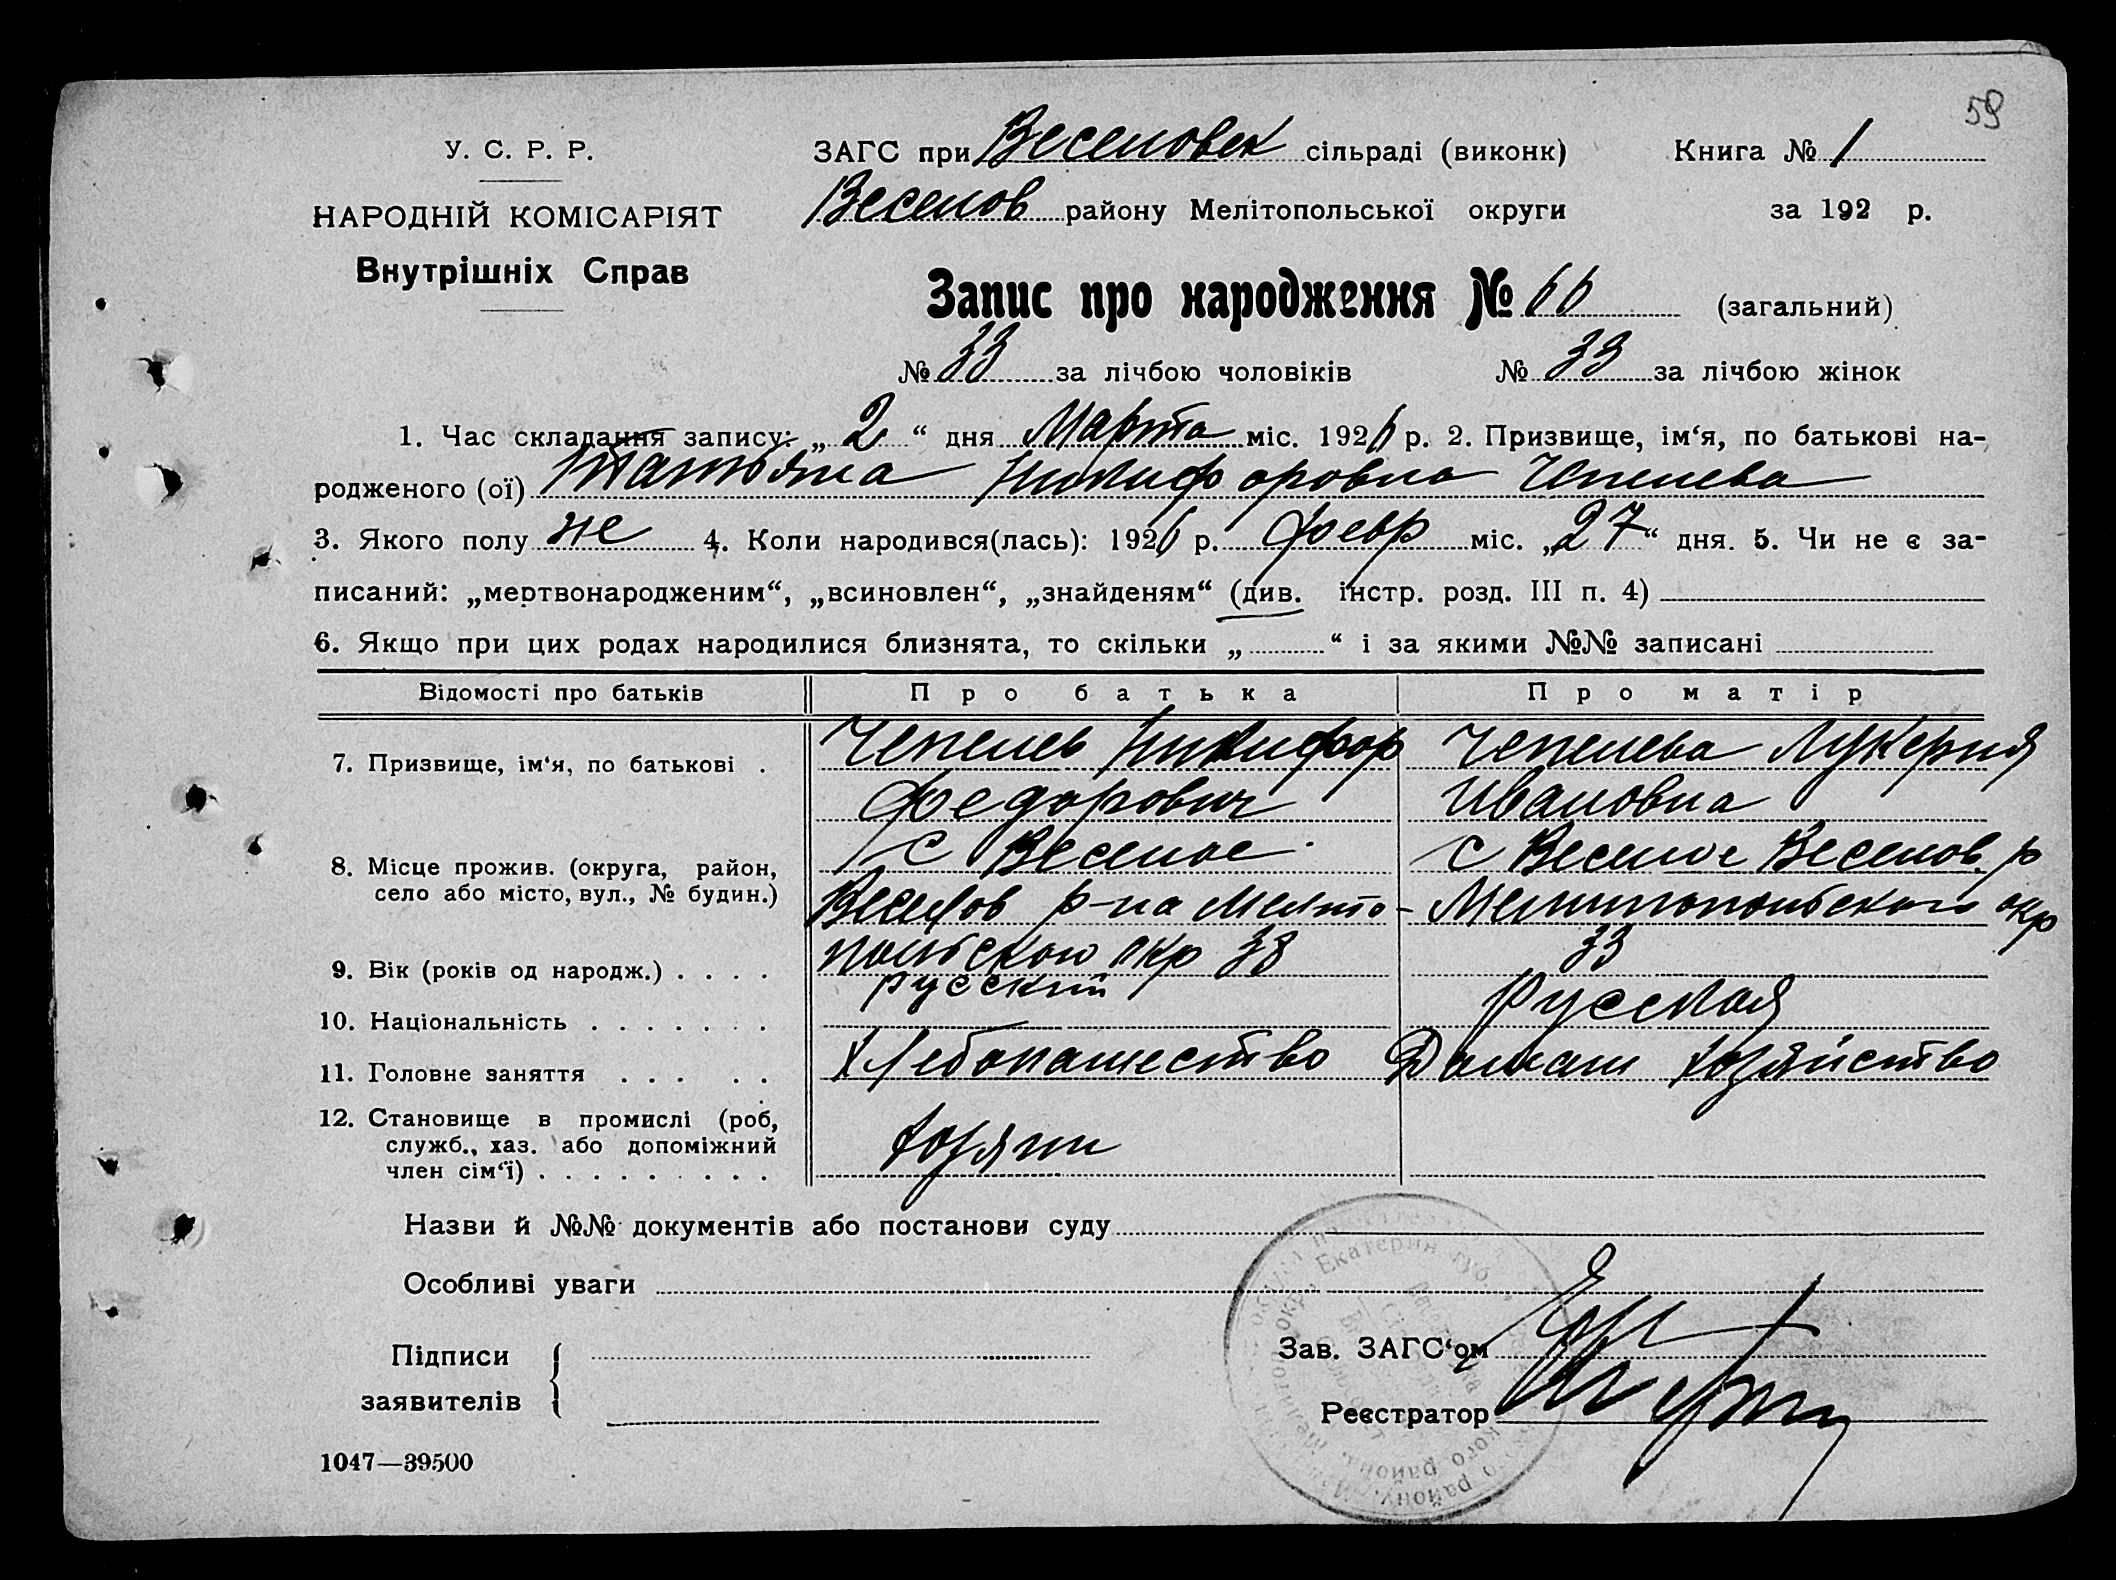 59
У. С. Р. Р.
НАРОДНІЙ КОМІСАРІЯТ
Внутрішніх Справ
ЗАГС при Веселовск сільраді (виконк) Книга № 1
Веселов району Мелітопольської округи за 192 р.
Запис про народження № 66 (загальний)
№ 33 за лічбою чоловіків № 33 за лічбою жінок
1. Час складання запису: „ 2 “ дня Марта міс. 1926 р. 2. Призвище, ім‘я, по батькові на-
родженого (ої) Татьяна Никифоровна Чепелева
3. Якого полу же 4. Коли народився(лась): 1926 р. февр міс. „27“ дня. 5. Чи не є за-
писаний: „мертвонародженим“, „всиновлен“, „знайденям“ (див. інстр. розд. III п. 4)
6. Якщо при цих родах народилися близнята, то скільки „ “ і за якими №№ записані
Відомості про батьків Про батька Про матір
7. Призвище, ім‘я, по батькові . Чепелев Никифор Чепелева Лукерия
Федорович Ивановна
8. Місце прожив. (округа, район, с Веселое с Веселое Веселов. р
село або місто, вул., № будин.) Веселов р-на Мелито- Мелитопольского окр
9. Вік (років од народж.) . . . . польского окр 38 33
10. Національність . . . . . . . русский Русская
11. Головне заняття . . . . . Хлебопашество Домашн хозяйство
12. Становище в промислі (роб,
служб., хаз. або допоміжний хозяин
член сім‘ї) . . . . . . . . .
Назви й №№ документів або постанови суду
Особливі уваги
Підписи
заявителів
Зав. ЗАГС‘ом
Реєстратор
1047—39500
Екатерин губ.